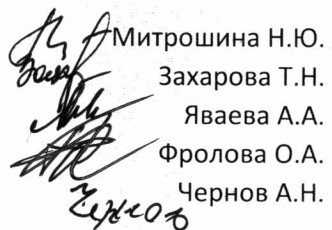 Митрошина Н.Ю.
Захарова Т.Н.
Яваева А.А.
Фролова О.А.
Чернов А.Н.